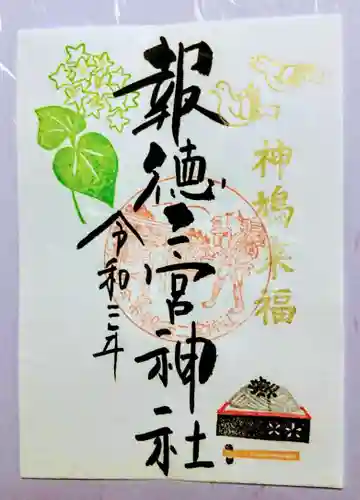 神鳩来福
報徳二宮神社
令和三年